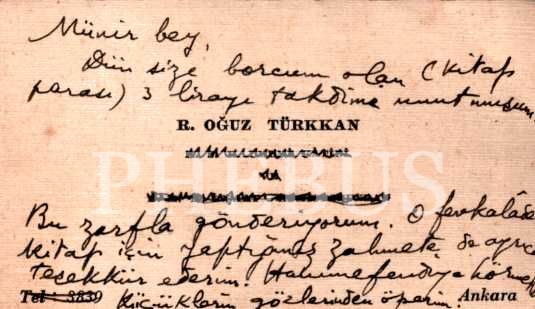 Münir bey,
Dün size borcum olan (kitap
parası) 3 lirayı takdime unutmuşum
R. OĞUZ TÜRKKAN
PHEBUS
Bu zarfla gönderiyorum. O fevkalâde
kitap için yaptığınız zahmete de ayrıca
teşekkür ederim. Hanımefendiye hürmet
Tel 3839 küçüklerin gözlerinden öperim. Ankara